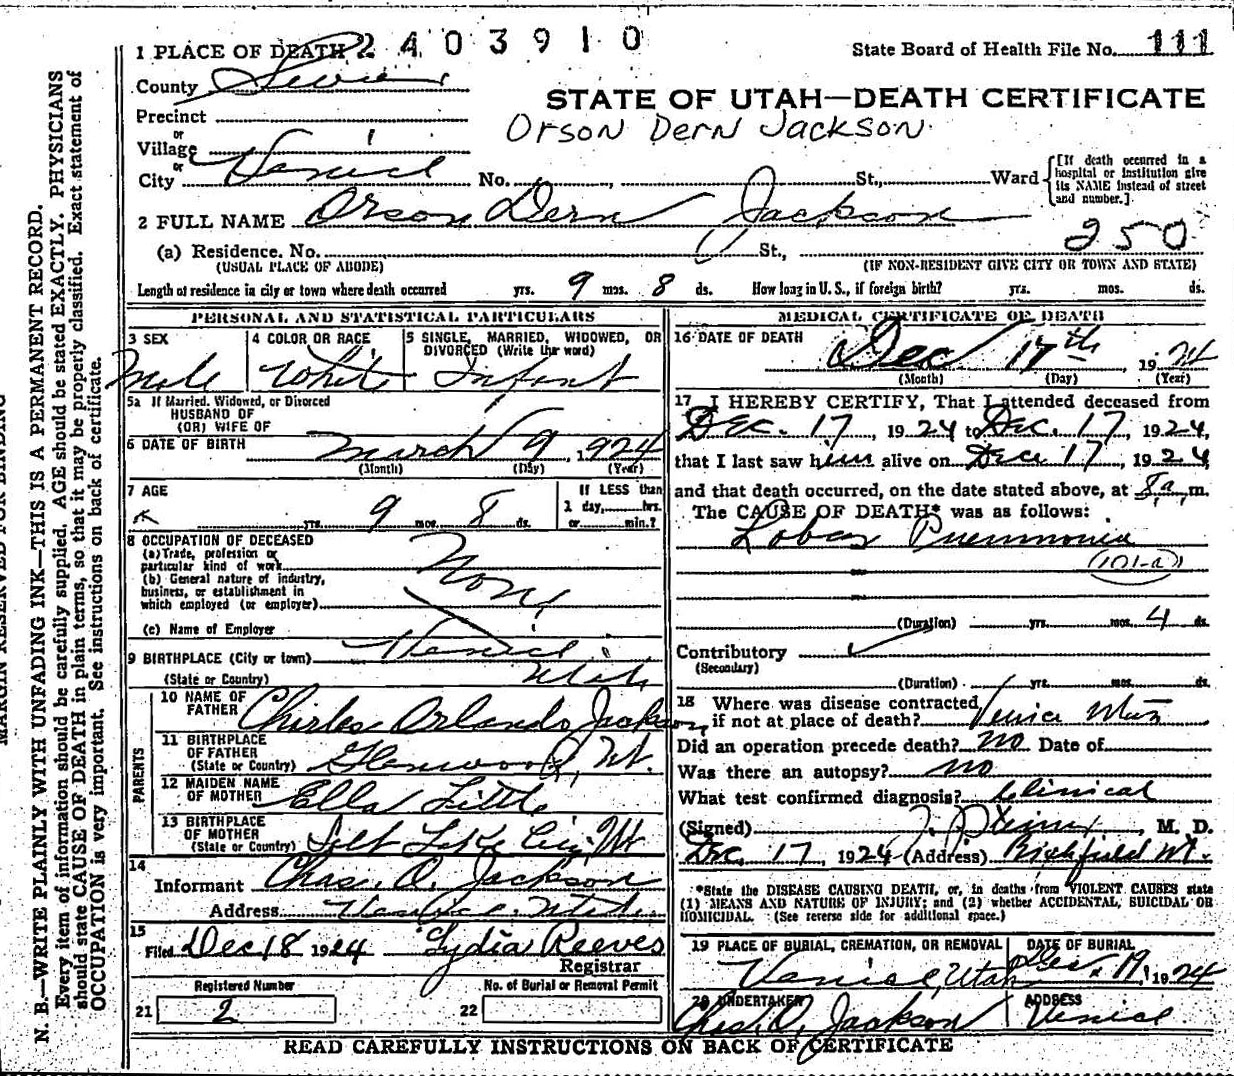 2403910
1 PLACE OF DEATH
State Board of Health File No. 111
County Sevier
STATE OF UTAH—DEATH CERTIFICATE
Precinct
Orson Dern Jackson
or
Village
or
City Venice No. , St., Ward
[If death occurred in a hospital or institution give its NAME instead of street and number.]
2 FULL NAME Orson Dern Jackson
250
(a) Residence. No. St.,
(USUAL PLACE OF ABODE) (IF NON-RESIDENT GIVE CITY OR TOWN AND STATE)
Length of residence in city or town where death occurred yrs. 9 mos. 8 ds. How long in U. S., if foreign birth? yrs. mos. ds.
PERSONAL AND STATISTICAL PARTICULARS
3 SEX Male
4 COLOR OR RACE White
5 SINGLE, MARRIED, WIDOWED, OR DIVORCED (Write the word) Infant
5a If Married, Widowed, or Divorced
HUSBAND OF
(OR) WIFE OF
6 DATE OF BIRTH March 9, 1924
(Month) (Day) (Year)
7 AGE yrs. 9 mos. 8 ds.
If LESS than
1 day, hrs.
or min.?
8 OCCUPATION OF DECEASED
(a) Trade, profession or
particular kind of work None
(b) General nature of industry,
business, or establishment in
which employed (or employer)
(c) Name of Employer
9 BIRTHPLACE (City or town) Venice
(State or Country) Utah
PARENTS
10 NAME OF FATHER Charles Orlando Jackson
11 BIRTHPLACE OF FATHER (State or Country) Glenwood, Ut.
12 MAIDEN NAME OF MOTHER Ella Little
13 BIRTHPLACE OF MOTHER (State or Country) Salt Lake City, Ut
14
Informant Chas. O. Jackson
Address Venice, Utah
15
Filed Dec 18 1924 Lydia Reeves
Registrar
Registered Number No. of Burial or Removal Permit
21 2 22
MEDICAL CERTIFICATE OF DEATH
16 DATE OF DEATH Dec 17th, 1924
(Month) (Day) (Year)
17 I HEREBY CERTIFY, That I attended deceased from
Dec. 17, 1924 to Dec. 17, 1924,
that I last saw him alive on Dec 17, 1924
and that death occurred, on the date stated above, at 8 a. m.
The CAUSE OF DEATH* was as follows:
Lobar Pneumonia
(101-a)
(Duration) yrs. mos. 4 ds
Contributory
(Secondary)
(Duration) yrs. mos. ds.
18 Where was disease contracted,
if not at place of death? Venice Utah
Did an operation precede death? no Date of
Was there an autopsy? no
What test confirmed diagnosis? Clinical
(Signed) M. D.
Dec. 17, 1924 (Address) Richfield Ut.
*State the DISEASE CAUSING DEATH, or, in deaths from VIOLENT CAUSES state
(1) MEANS AND NATURE OF INJURY; and (2) whether ACCIDENTAL, SUICIDAL OR
HOMICIDAL. (See reverse side for additional space.)
19 PLACE OF BURIAL, CREMATION, OR REMOVAL Venice, Utah
DATE OF BURIAL Dec. 19, 1924
20 UNDERTAKER Chas. O. Jackson
ADDRESS Venice
READ CAREFULLY INSTRUCTIONS ON BACK OF CERTIFICATE
MARGIN RESERVED FOR BINDING
N. B.—WRITE PLAINLY WITH UNFADING INK—THIS IS A PERMANENT RECORD.
Every item of information should be carefully supplied. AGE should be stated EXACTLY. PHYSICIANS
should state CAUSE OF DEATH in plain terms, so that it may be properly classified. Exact statement of
OCCUPATION is very important. See instructions on back of certificate.